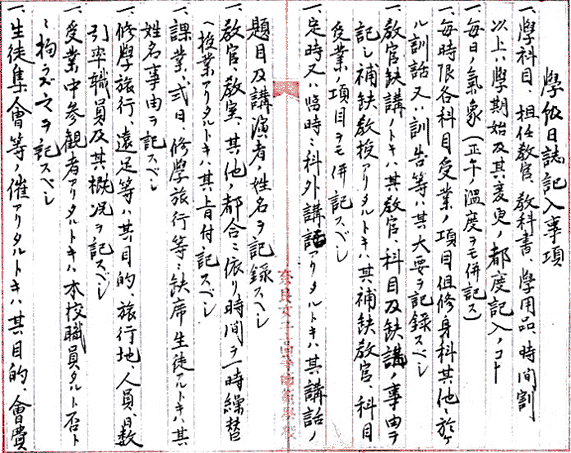 學級日誌記入事項
一、學科目、担任教官、教科書、學用品、時間割
以上ハ學期始及其ノ変更ノ都度記入ノコト
一、毎日ノ氣象(正午ノ温度ヲモ併記ス)
一、毎時限各科目受業ノ項目但修身科其ノ他ニ於ケ
ル訓話又ハ訓告等ハ其大要ヲ記録スベシ
一、教官缺講ノトキハ其教官、科目及缺講ノ事由ヲ
記シ補缺教授アリタルトキハ其補缺教官、科目
受業ノ項目ヲモ併記スベシ
一、定時又ハ臨時ニ科外講話アリタルトキハ其講話ノ
題目及講演者ノ姓名ヲ記録スベシ
一、教官、教室、其他ノ都合ニ依リ時間ヲ一時繰替
ヘ授業アリタルトキハ其旨付記スベシ
一、課業、式日、修學旅行等ニ缺席生徒アルトキハ其
姓名事由ヲ記スベシ
一、修學旅行、遠足等ハ其目的、旅行地、人員、日数
引率職員及其概况ヲ記スベシ
一、受業中参観者アリタルトキハ本校職員タルト否ト
ニ拘ラズ之ヲ記スベシ
一、生徒集會等ノ催アリタルトキハ其目的、會費
奈良女子高等師範學校